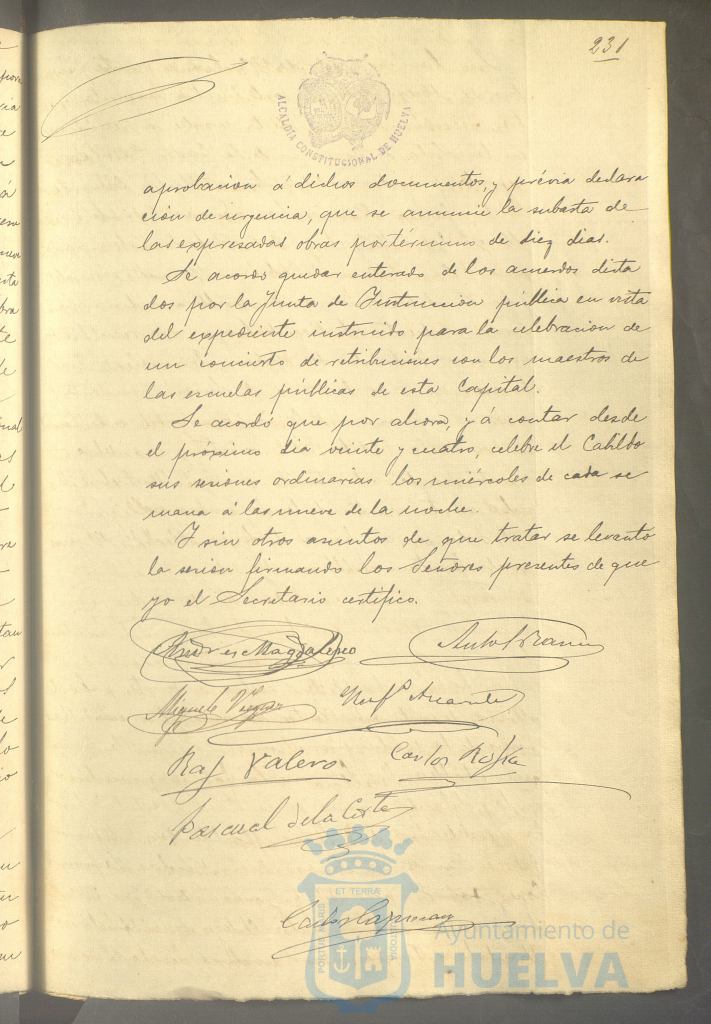 231
ALCALDIA CONSTITUCIONAL DE HUELVA
aprobacion á dichos documentos, y prévia declara
cion de urgencia, que se anuncie la subasta de
las expresadas obras por término de diez dias.
Se acordó quedar enterado de los acuerdos dicta
dos por la Junta de Instruccion pública en vista
del expediente instruido para la celebracion de
un concierto de retribuciones con los maestros de
las escuelas públicas de esta Capital.
Se acordó que por ahora, y á contar desde
el próximo dia veinte y cuatro, celebre el Cabildo
sus sesiones ordinarias los miércoles de cada se
mana á las nueve de la noche.
Y sin otros asuntos de que tratar se levantó
la sesion firmando los Señores presentes de que
yo el Secretario certifico.
Andres Magdaleno
Miguel
Raf Valero
Carlos
Pascual de la Corte
PORTUS MARIS ET TERRAE CUSTODIA
Ayuntamiento de
HUELVA